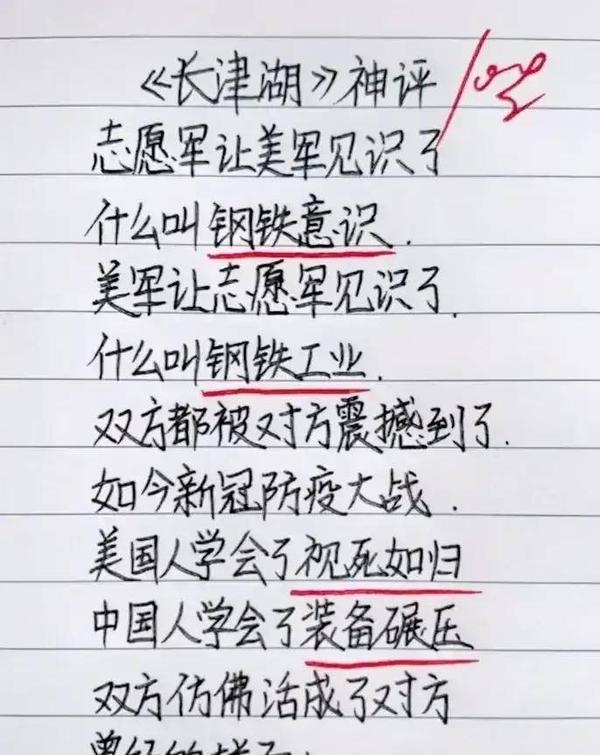 《长津湖》神评
志愿军让美军见识了
什么叫钢铁意识.
美军让志愿军见识了.
什么叫钢铁工业.
双方都被对方震撼到了.
如今新冠防疫大战.
美国人学会了视死如归
中国人学会了装备碾压
双方仿佛活成了对方